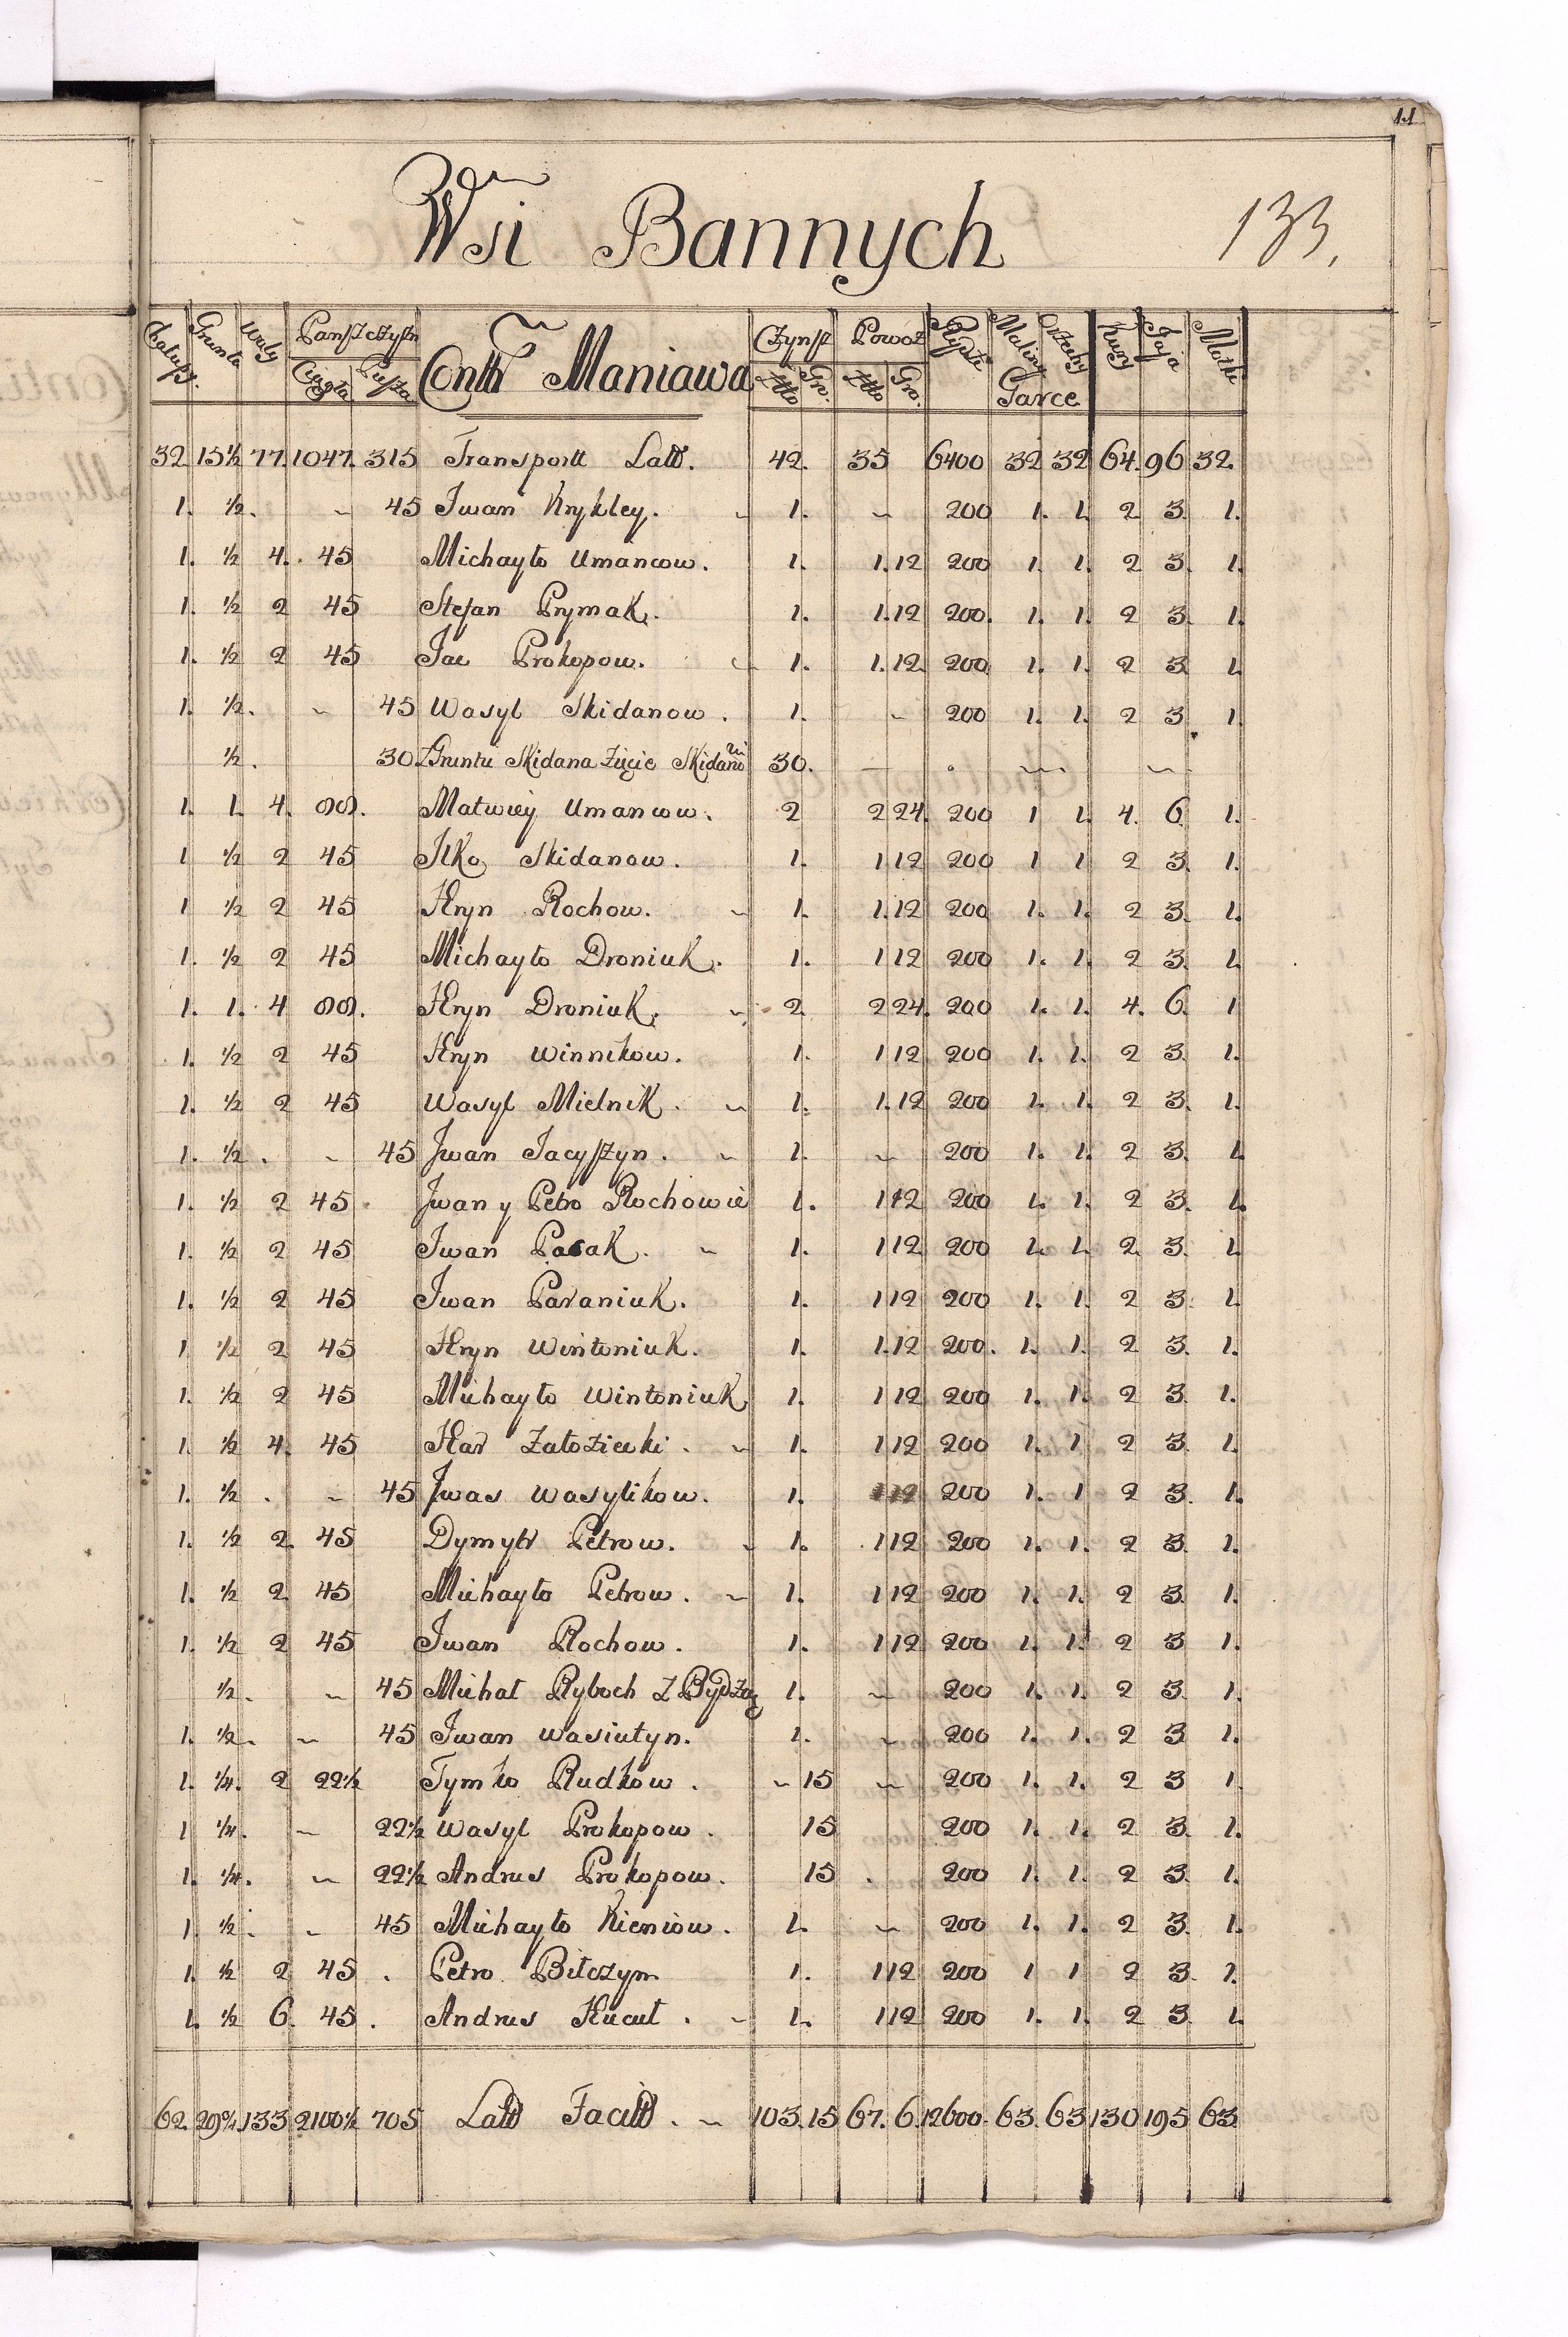 11
Wsi Bannych
133.
Chałup. Grunta Woły Panszczyzn Contt Maniawa Czynsz Powoz Rypte Maliny Orzechy Kury Jaja Motki
Ciągła Piesza Złło Gro. Złło Gro. Garce
32 15½ 77. 1047. 315 Transportt Latt. 42. 35 6400 32 32 64. 96 32.
1. ½. ~ 45 Iwan Krykley. 1. ~ 200 1. 1. 2 3. 1.
1. ½ 4. 45 Michayło Umancow. 1. 1. 12 200 1. 1. 2 3. 1.
1. ½ 2 45 Stefan Prymak. 1. 1. 12 200. 1. 1. 2 3. 1.
1. ½ 2 45 Jac Prokopow. 1. 1. 12. 200 1. 1. 2 3 1.
1. ½. ~ 45 Wasyl Skidanow. 1. ~ 200 1. 1. 2 3 1
½. 30. Z Gruntu Skidana Zięcie Skidano wi 30. — . ~ ~
1. 1. 4. 90. Matwiey Umancow. 2 2 24. 200 1 1. 4. 6 1.
1 ½ 2 45 Ilko Skidanow. 1. 1 12 200 1 1 2 3. 1.
1 ½ 2 45 Hryn Rochow. ~ 1. 1. 12 200 1. 1. 2 3. 1.
1. ½ 2 45 Michayło Droniuk. 1. 1 12 200 1. 1. 2 3. 1.
1. 1. 4 90. Hryn Droniuk. ~ 2 2 24. 200 1. 1. 4. 6. 1
1. ½ 2 45 Hryn Winnikow. 1. 1 12 200 1. 1. 2 3. 1.
1. ½ 2 45 Wasyl Mielnik. ~ 1. 1. 12 200 1. 1. 2 3. 1.
1. ½. ~ 45 Iwan Jacyszyn. ~ 1. ~ 200 1. 1. 2 3. 1
1. ½ 2 45 Iwan y Petro Rochowie 1. 1 12 200 1. 1. 2 3. 1.
1. ½ 2 45 Iwan Pasak. ~ 1. 1 12 200 1. 1. 2. 3. 1.
1. ½ 2 45 Iwan Paraniuk. 1. 1 12 200 1. 1. 2 3. 1.
1 ½ 2 45 Hryn Wintoniuk. 1. 1. 12 200. 1. 1. 2 3. 1.
1. ½ 2 45 Michayło Wintoniuk 1. 1 12 200 1. 1. 2 3. 1.
1. ½ 4. 45 Har Załoziecki. ~ 1. 1 12 200 1. 1 2 3. 1.
1. ½. ~ 45 Iwas Wasylikow. 1. 1 12 200 1. 1 2 3. 1.
1. ½ 2. 45 Dymytr Petrow. 1. 1 12 200 1. 1. 2 3. 1.
1. ½ 2. 45 Michayło Petrow. ~ 1. 1 12 200 1. 1. 2 3. 1.
1. ½ 2 45 Iwan Rochow. 1. 1 12 200 1. 1. 2 3 1.
½. ~ 45 Michał Ryboch 1. ~ 200 1. 1. 2 3. 1.
1. ½. ~ 45 Iwan Wasiutyn. 1. ~ 200 1. 1. 2 3 1.
1. ¼. 2 22½ Tymko Rudkow. ~ 15 ~ 200 1. 1. 2 3 1
1 ¼. ~ 22½ Wasyl Prokopow. 15 200 1. 1. 2 3. 1.
1. ¼. ~ 22½ Andrus Prokopow. 15. 200 1. 1. 2 3. 1.
1 ½. ~ 45 Michayło Kieniow. 1. ~ 200 1. 1. 2 3. 1.
1. ½ 2 45. Petro Biłczyn 1. 1 12 200 1 1 2 3. 1.
1. ½ 6. 45. Andrus Hucuł. ~ 1. 1 12 200 1. 1. 2 3. 1.
62. 29¾. 133 2100½ 705 Latt Facitt. ~ 103. 15 67. 6. 12600. 63. 63 130 195 63.